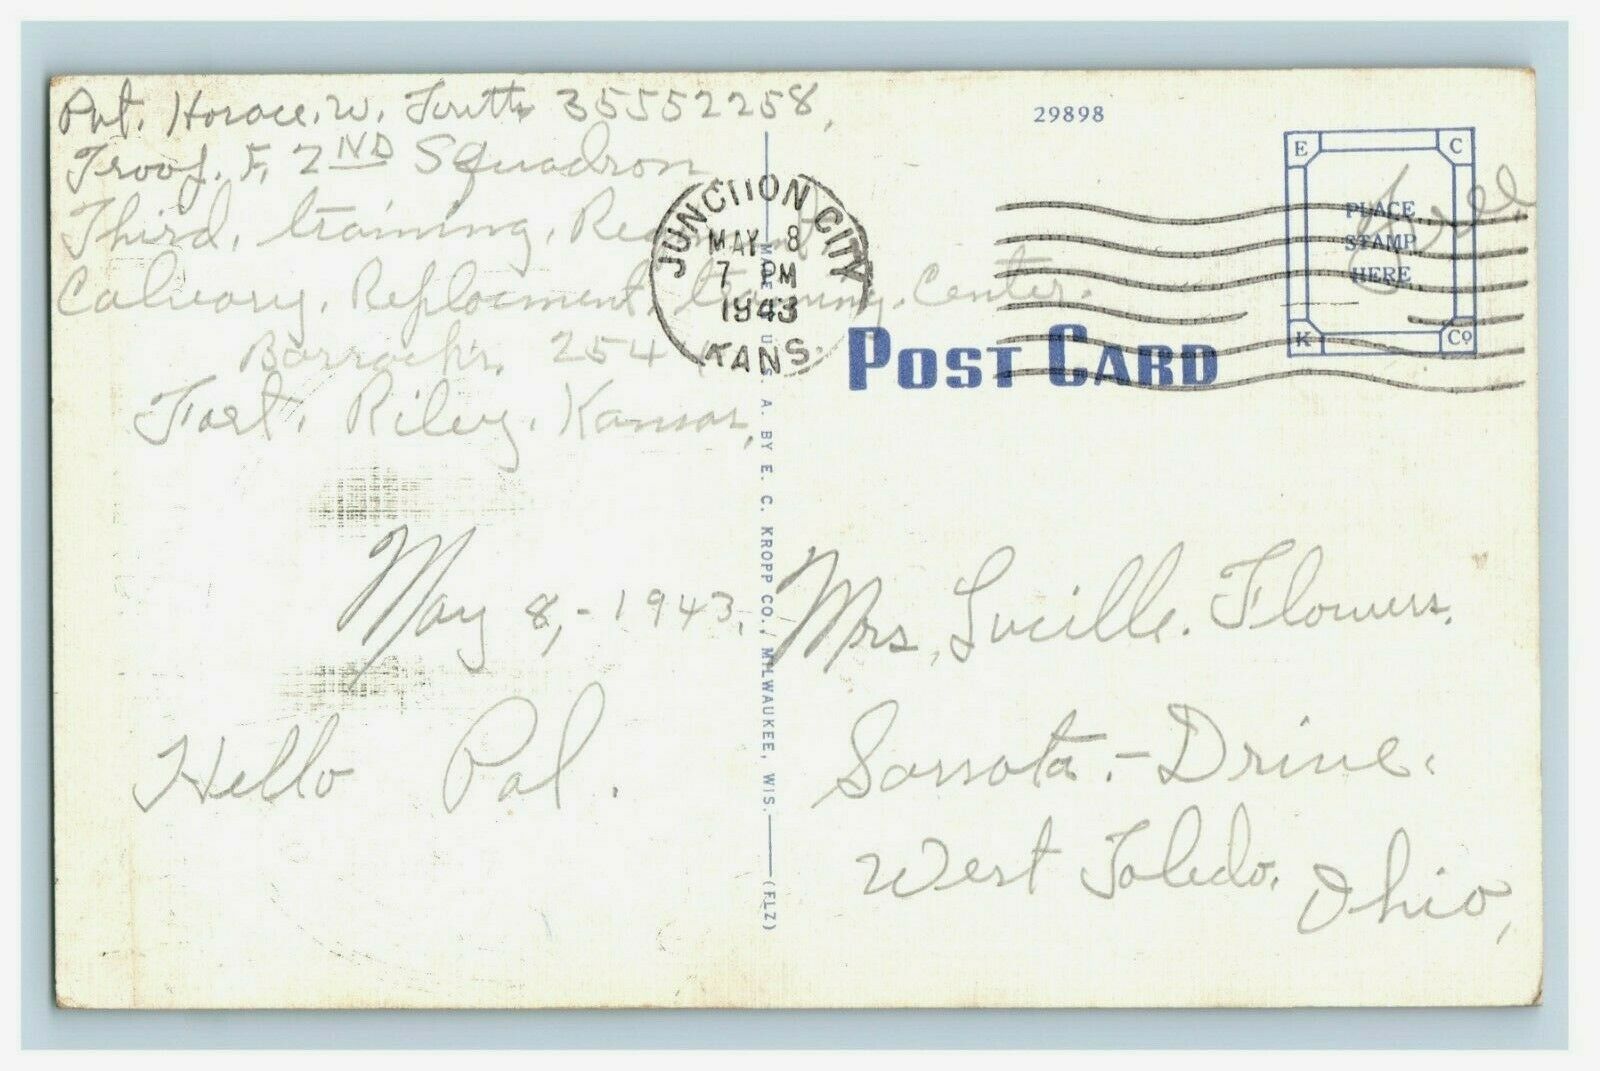 Pvt. Horace. W. 35552258,
Troop. F, 2ND Squadron
Third, training, Regiment
Calvary, Replacment, training, Center.
Barrack's, 254
Fort, Riley, Kansas,
May 8,-1943,
Hello Pal.
29898
JUNCTION CITY
MAY 8
7 PM
1943
KANS.
E C
K Co
PLACE
STAMP
HERE
Free
POST CARD
MADE IN U. S. A. BY E. C. KROPP CO., MILWAUKEE, WIS. (FLZ)
Mrs, Lucille. Flowers,
Drive.
West Toledo,
Ohio,